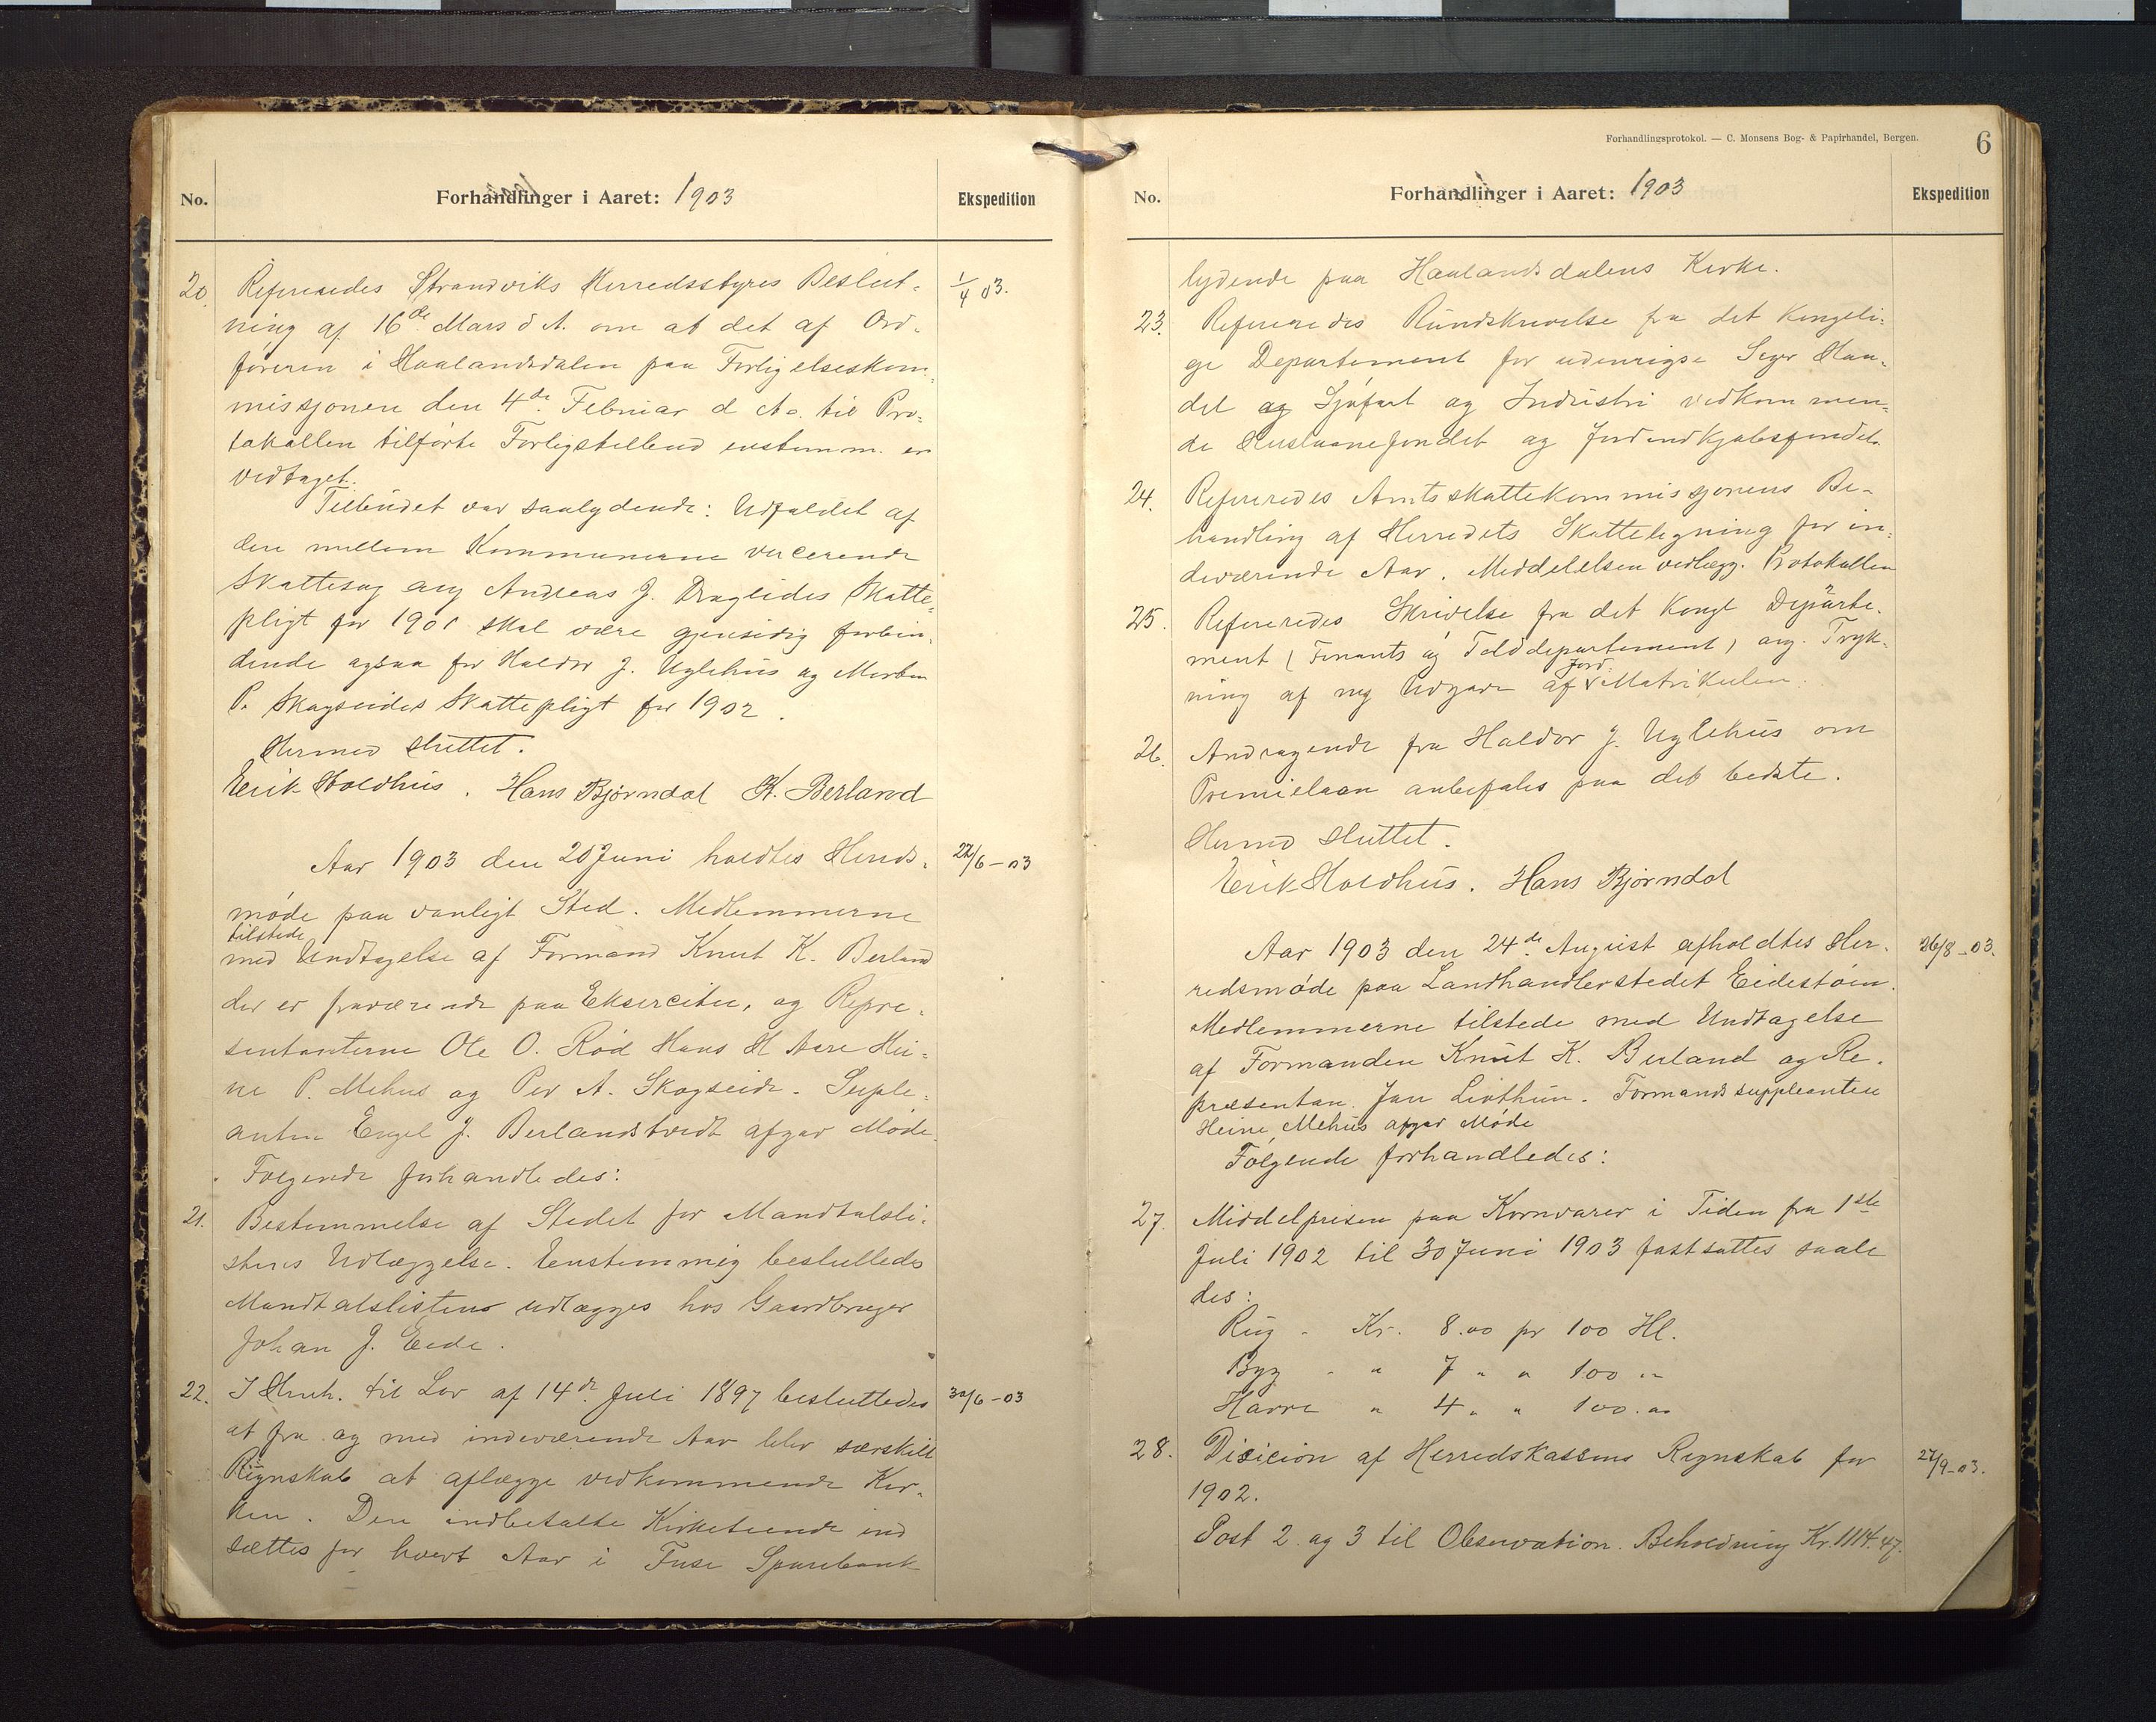 No. Forhandlinger i Aaret: 1903 Ekspedition
20. Refereredes Strandviks Herredsstyres Beslut- 1/4 03.
ning af 16de Mars d A. om at det af Ord-
føreren i Haalandsdalen paa Forligelseskom-
missjonen den 4de Februar d A. til Pro-
tokollen tilførte Forligstilbud enstemm. er
vedtaget.
Tilbudet var saalydende: Udfaldet af
den mellem Kommunerne verserende
Skattesag ang Andreas J. Drageides Skatte-
pligt for 1901 skal være gjensidig forbin-
dende ogsaa for Haldor J. Uglehus og Morten
P. Skogseides Skattepligt for 1902.
Hermed sluttet.
Erik Holdhus. Hans Bjørndal K. Berland
Aar 1903 den 20 Juni holdtes Herreds- 22/6-03
møde paa vanligt Sted. Medlemmerne
tilstede
med Undtagelse af Formand Knut K. Berland
der er fraværende paa Eksercitie, og Repre-
sentanterne Ole O. Rød Hans H Aare Hei-
ne P. Mehus og Per A. Skogseide. Suple-
anten Engel J. Berlandstvedt afgav Møde.
Følgende forhandledes:
21. Bestemmelse af Stedet for Mandtalsli-
sternes Udlæggelse. Enstemmig besluttedes
Mandtalslistene udlægges hos Gaardbruger
Johan J. Eide.
22. I Henh. til Lov af 14de Juli 1897 besluttedes 30/6-03
at fra og med indeværende Aar blev særskilt
Regnskab at aflægge vedkommende Kir-
ken. Den indbetalte Kirketiende ind
sættes for hvert Aar i Fuse Sparebank
Forhandlingsprotokol. — C. Monsens Bog- & Papirhandel, Bergen. 6
No. Forhandlinger i Aaret: 1903 Ekspedition
lydende paa Haalandsdalens Kirke.
23. Refereredes Rundskrivelse fra det Kongeli-
ge Departement for udenrigse Sager Han-
del og Sjøfart og Industri vedkommen-
de Huslaanefondet og Jordindkjøbsfondet.
24. Refereredes Amtsskattekommissjonens Be-
handling af Herredets Skatteligning for in-
deværende Aar. Meddelelsen vedlægg. Protokollen
25. Refereredes Skrivelse fra det Kongl Departe-
ment (Finants og Tolddepartement) ang. Tryk-
Jord
ning af ny Udgave af Matrikulen.
26. Andragende fra Haldor J. Uglehus om
Premielaan anbefales paa det bedste.
Hermed sluttet.
Erik Holdhus. Hans Bjørndal
Aar 1903 den 24de August afholdtes Her- 26/8-03.
redsmøde paa Landhandlerstedet Eidestøen.
Medlemmerne tilstede med Undtagelse
af Formanden Knut K. Berland og Re-
præsentan. Jan Livthun. Formandssuppleanten
Heine Mehus afgav Møde
Følgende forhandledes:
27. Middelprisen paa Kornvarer i Tiden fra 1ste
Juli 1902 til 30 Juni 1903 fastsattes saale
des:
Rug - Kr. 8.00 pr 100 Hl.
Byg - " 7 " " 100 "
Havre " 4 " " 100 "
28. Disicion af Herredskassens Regnskab for 27/9-03.
1902.
Post 2 og 3 til Observation. Beholdning Kr. 1114.47.